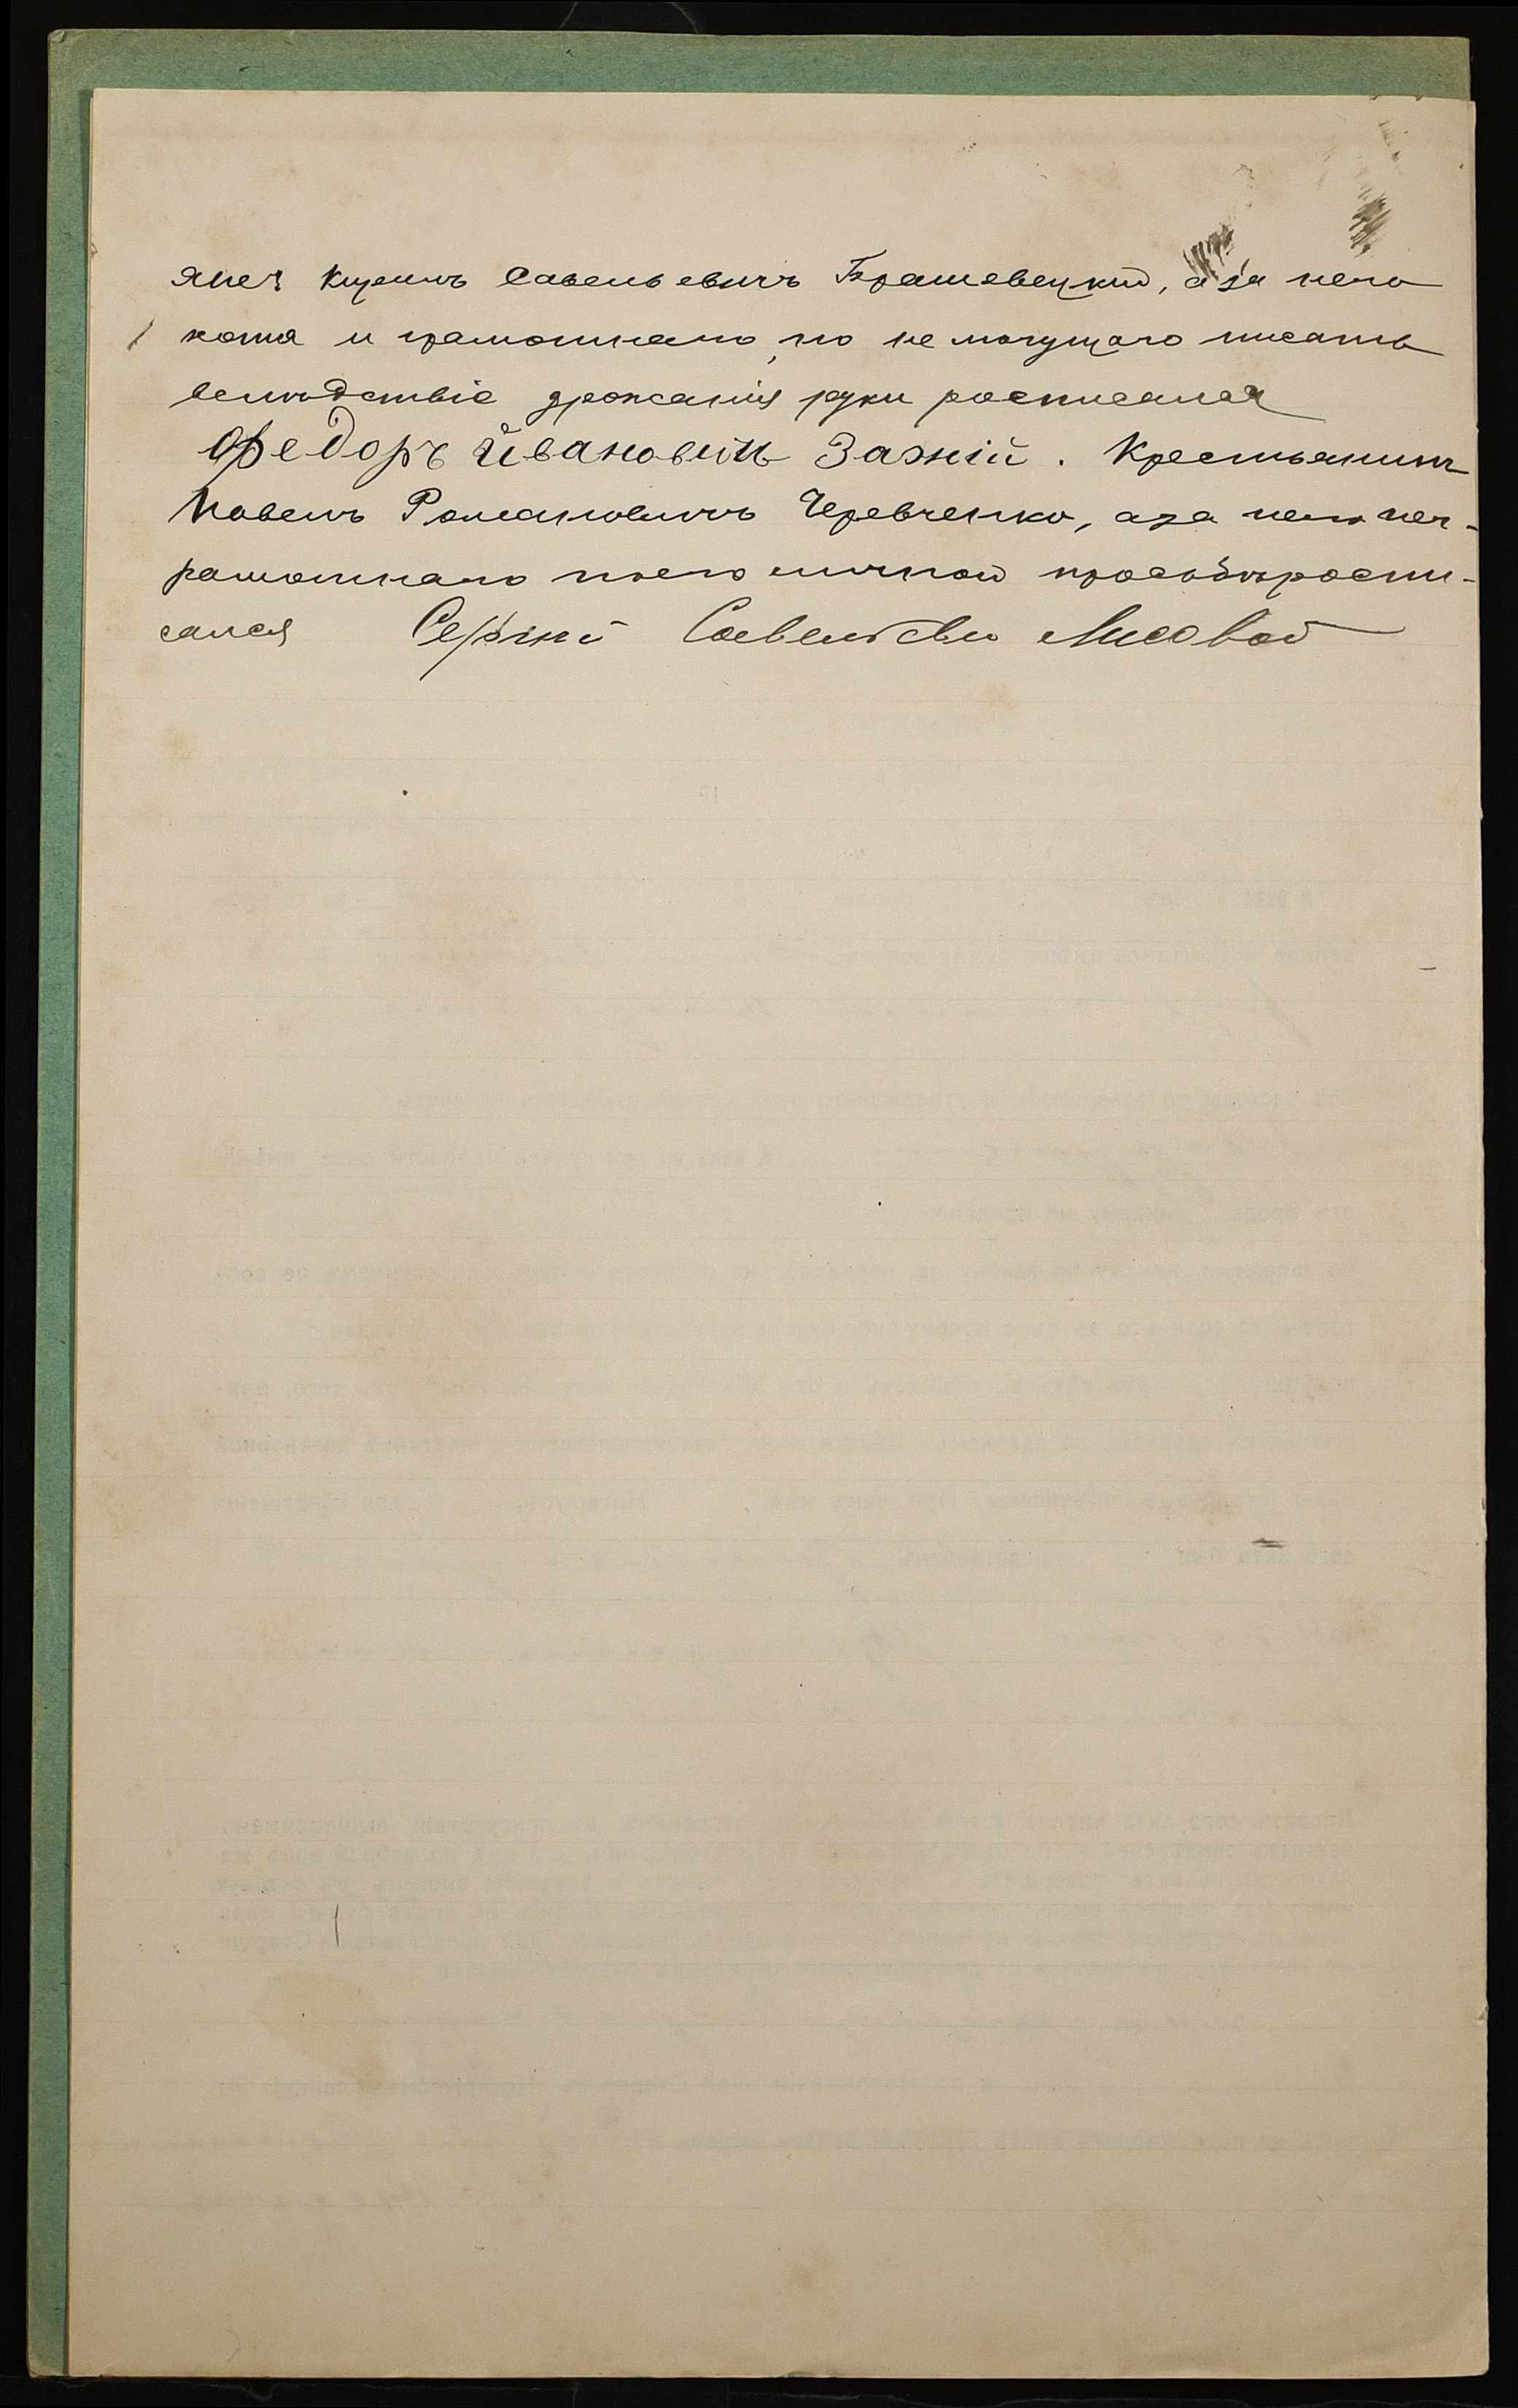 Савельевичъ Брашевецкий, а за него
хотя и грамотнаго, но не могущаго писать
вслѣдствіе дрожанія руки росписался
Федоръ Ивановичъ Зазній. Крестьянинъ
Павелъ Романовичъ Черевченко, а за него нег-
рамотнаго по его личной просьбѣ роспи-
сался Савельевъ Лисовой